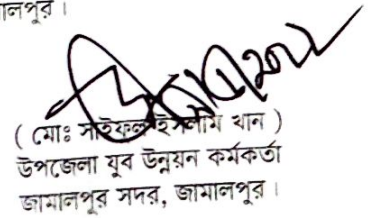 মালপুর।
( মোঃ সাইফুল ইসলাম খান )
উপজেলা যুব উন্নয়ন কর্মকর্তা
জামালপুর সদর, জামালপুর।